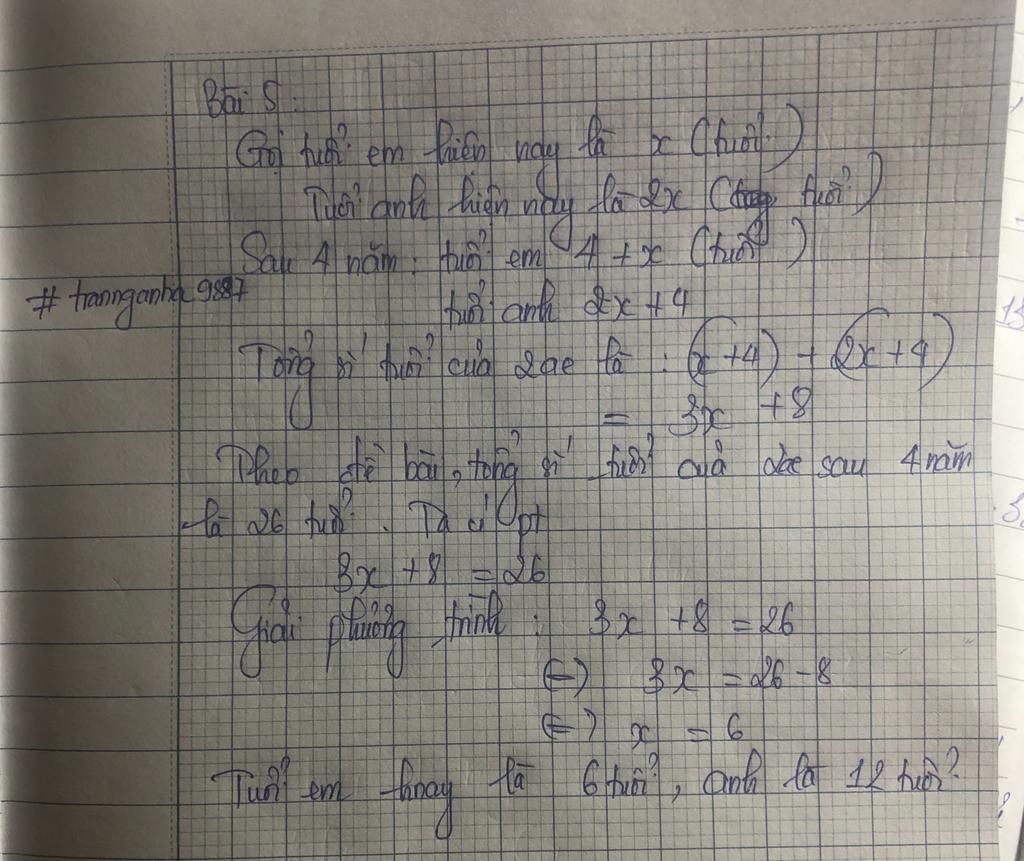 Bài 5:
Gọi tuổi em hiện nay là x (tuổi)
Tuổi anh hiện nay là 2x (tuổi)
Sau 4 năm: tuổi em 4 + x (tuổi)
# trannganha 9887
tuổi anh 2x + 4
Tổng số tuổi của 2ae là : (x + 4) + (2x + 4)
= 3x + 8
Theo đề bài, tổng số tuổi của 2ae sau 4 năm
là 26 tuổi. Ta có pt
3x + 8 = 26
Giải phương trình : 3x + 8 = 26
(=) 3x = 26 - 8
(=) x = 6
Tuổi em hnay là 6 tuổi, anh là 12 tuổi